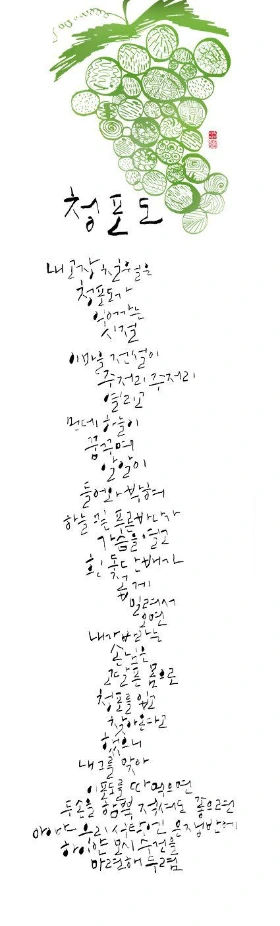 청포도
내 고장 칠월은
청포도가
익어가는
시절
이 마을 전설이
주저리 주저리
열리고
먼데 하늘이
꿈꾸며
알알이
들어와 박혀
하늘 밑 푸른 바다가
가슴을 열고
흰 돛단배가
곱게
밀려서
오면
내가 바라는
손님은
고달픈 몸으로
청포를 입고
찾아온다고
했으니
내 그를 맞아
이 포도를 따먹으면
두 손을 함뿍 적셔도 좋으련
아이야 우리 식탁엔 은쟁반에
하이얀 모시 수건을
마련해 두렴